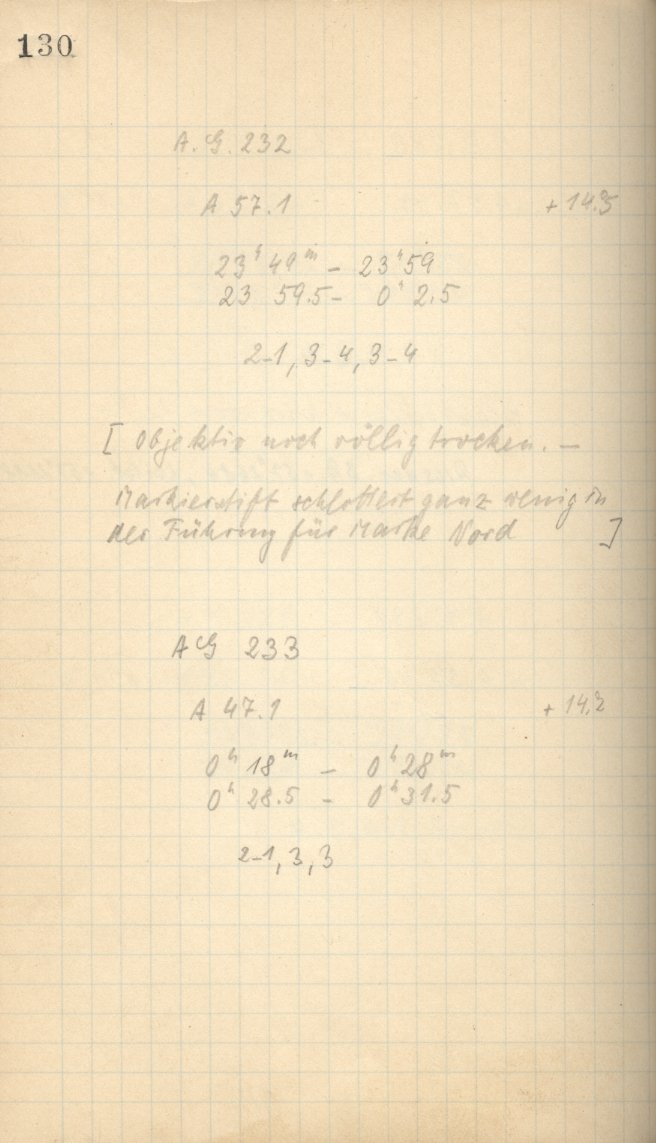 130
A. G. 232
A 57.1 + 14.5
23ʰ 49ᵐ – 23ʰ 59
23 59.5 – 0ʰ 2.5
2-1, 3-4, 3-4
[ Objektiv noch völlig trocken. —
Markierstift schlottert ganz wenig in
der Führung für Marke Nord ]
AG 233
A 47.1 + 14.2
0ʰ 18ᵐ – 0ʰ 28ᵐ
0ʰ 28.5 – 0ʰ 31.5
2-1, 3, 3